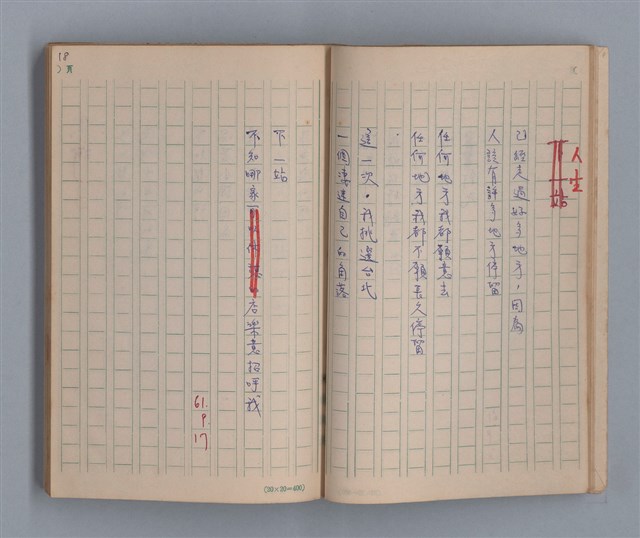 人生
下一站
已經走過好多地方，因為
人說有許多地方停留
任何地方我都願意去
任何地方我都不願長久停留
這一次，我挑選台北
一個湊進自己的角落
18
頁
下一站
不知哪家店樂意招呼我
61.9.17
(20×20=400)